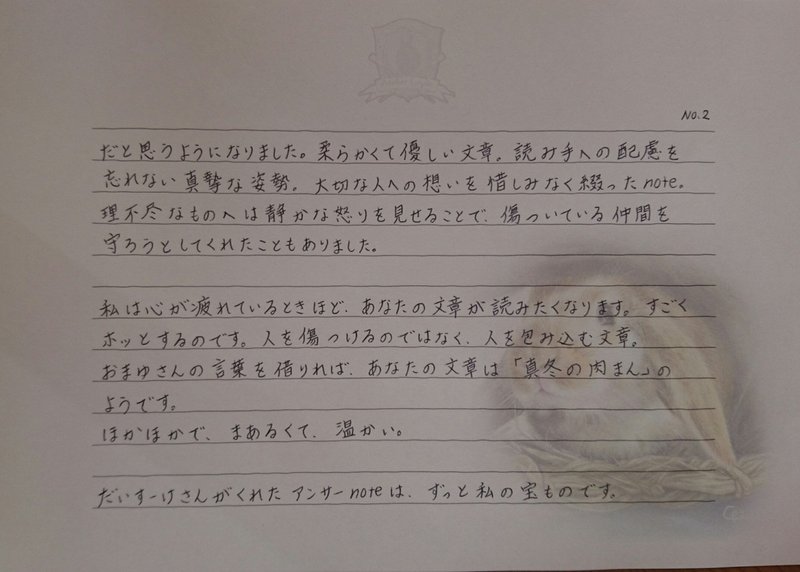 No.2
だと思うようになりました。柔らかくて優しい文章。読み手への配慮を
忘れない真摯な姿勢。大切な人への想いを惜しみなく綴ったnote。
理不尽なものへは静かな怒りを見せることで、傷ついている仲間を
守ろうとしてくれたこともありました。
私は心が疲れているときほど、あなたの文章が読みたくなります。すごく
ホッとするのです。人を傷つけるのではなく、人を包み込む文章。
おまゆさんの言葉を借りれば、あなたの文章は「真冬の肉まん」の
ようです。
ほかほかで、まあるくて、温かい。
だいすーけさんがくれたアンサーnoteは、ずっと私の宝ものです。